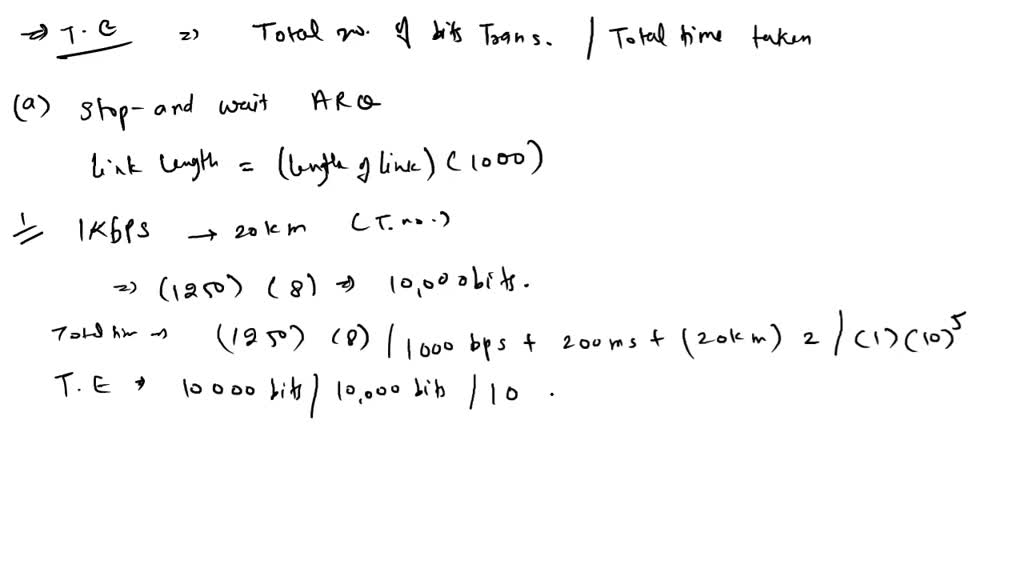 → T.E ⇒ Total no. of bits Trans. / Total time taken
(a) Stop-and wait ARQ
Link length = (length of link) (1000)
1 1Kbps → 20km (T. no.)
⇒ (1250) (8) ⇒ 10,000bits.
Total tim ⇒ (1250) (8) / 1000 bps + 200ms + (20km) 2 / (1) (10)^5
T.E → 10000 bits / 10,000 bits / 10 .